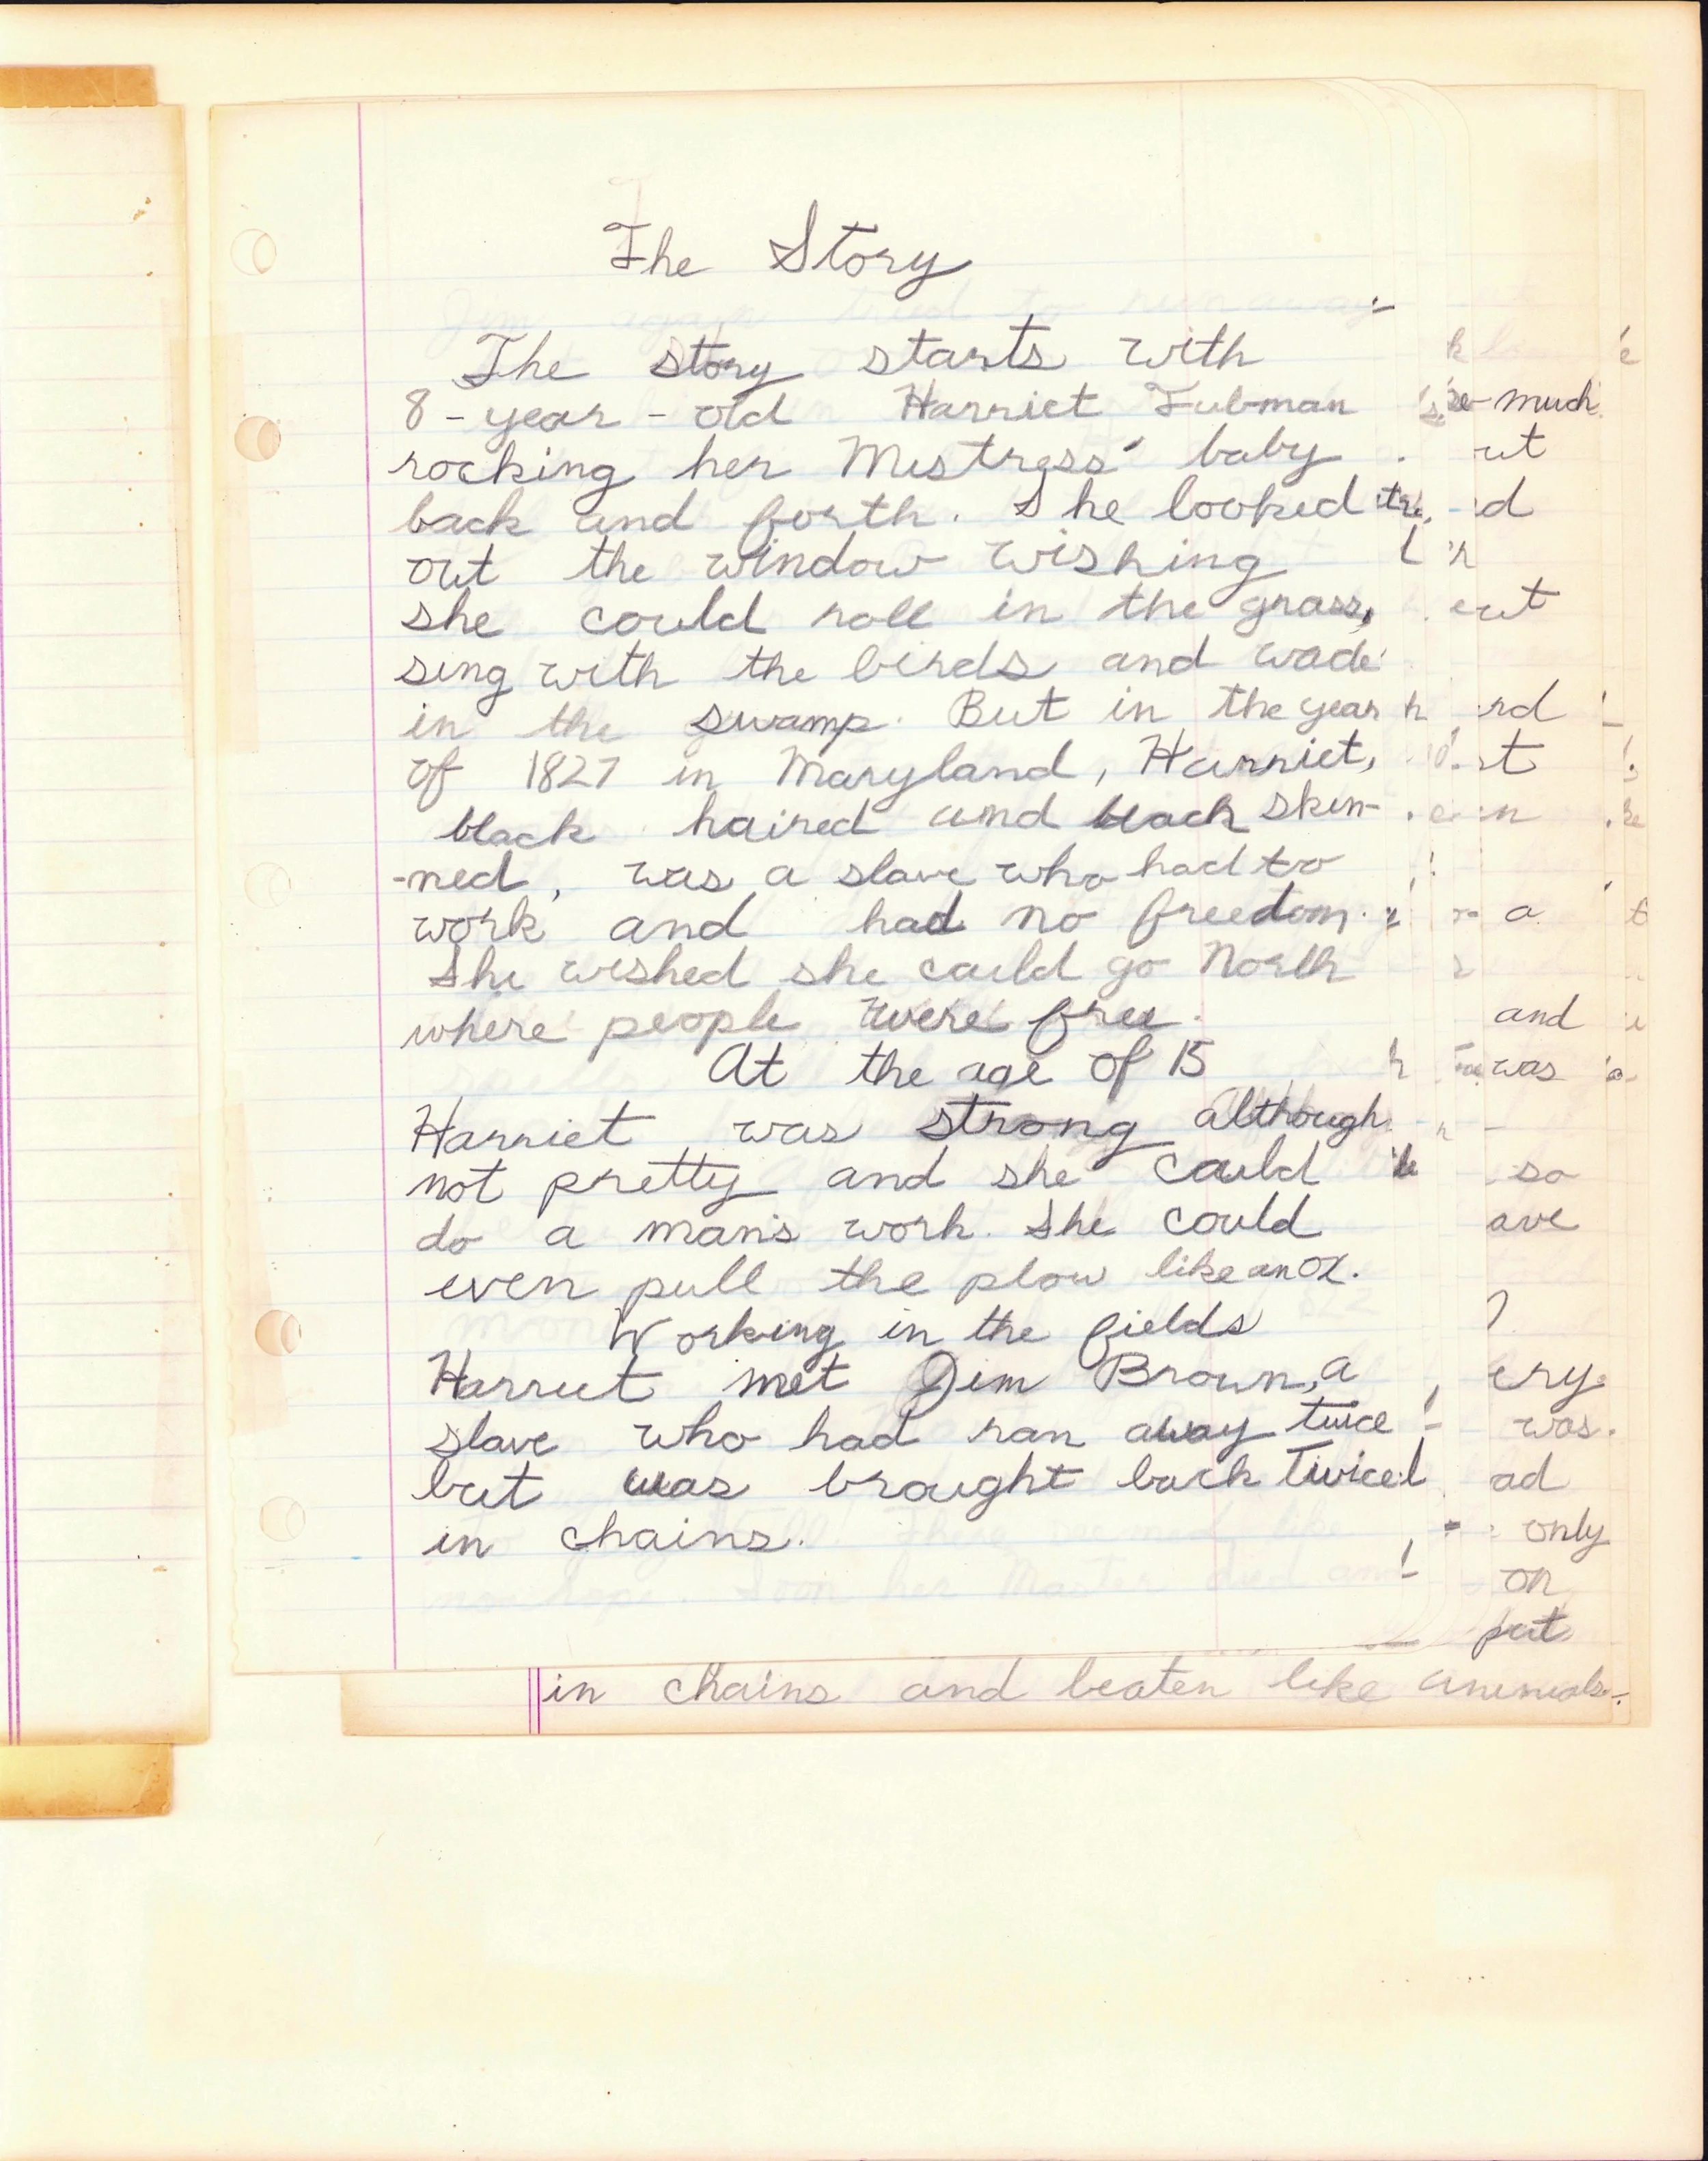 The Story
The story starts with
8-year-old Harriet Tubman
rocking her Mistress' baby
back and forth. She looked
out the window wishing
she could roll in the grass,
sing with the birds and wade
in the swamp. But in the year
of 1827 in Maryland, Harriet,
black haired and black skin-
-ned, was a slave who had to
work and had no freedom.
She wished she could go North
where people were free.
At the age of 15
Harriet was strong although
not pretty and she could
do a man's work. She could
even pull the plow like an ox.
Working in the fields
Harriet met Jim Brown, a
slave who had ran away twice
but was brought back twice
in chains.
much
and
was
so
was.
only
on
put
in chains and beaten like animals.